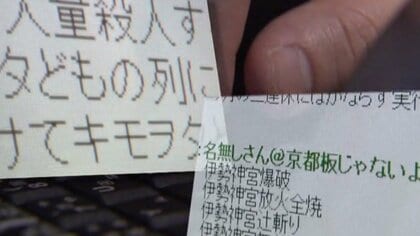 人量殺人す
タどもの列に
けてキモヲタ
の三連休にはかならず実行
:名無しさん@京都板じゃないよ
伊勢神宮爆破
伊勢神宮放火全焼
伊勢神宮辻斬り
伊勢神宮